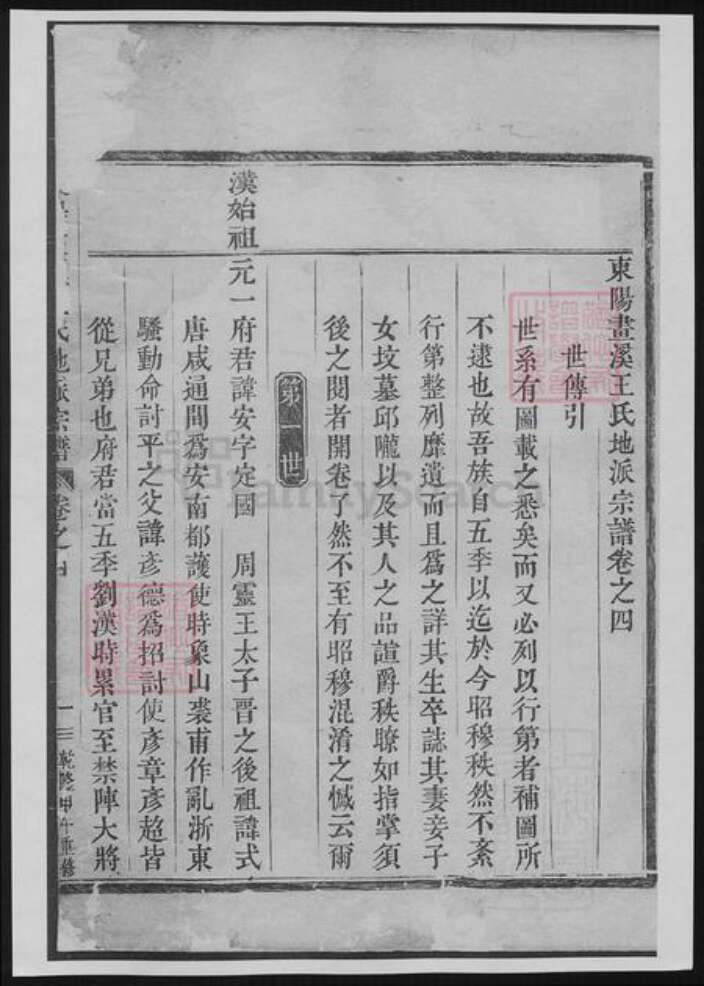 東陽畫溪王氏地派宗譜卷之四
世傳引
世系有圖載之悉矣而又必列以行第者補圖所
不逮也故吾族自五季以迄於今昭穆秩然不紊
行第整列靡遺而且爲之詳其生卒誌其妻妾子
女坟墓邱隴以及其人之品諠爵秩瞭如指掌須
後之閱者開卷了然不至有昭穆混淆之憾云爾
第一世
漢始祖元一府君諱安字定國 周靈王太子晉之後祖諱式
唐咸通間爲安南都護使時象山裘甫作亂浙東
騷動命討平之父諱彥德爲招討使彥章彥超皆
從兄弟也府君當五季劉漢時累官至禁陣大將
氏地派宗譜 卷之四 一 乾隆甲午重修
FamilySearch